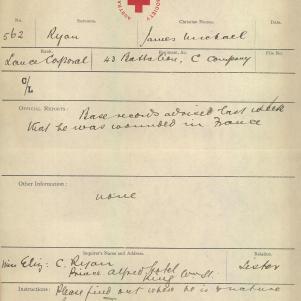 SOCIETY
No. Surname. Christian Names.
562 Ryan James Michael
Rank. Battalion, &c. File No.
Lance Corporal 43 Battalion, C Company
C/L
OFFICIAL REPORTS: Base records advised last week
that he was wounded in France
Other Information:
none
Inquirer's Name and Address. Relation.
Miss Eliz: C. Ryan Sister
Prince Alfred Hotel
King Wm St.
Instructions: Please find out where he is & nature